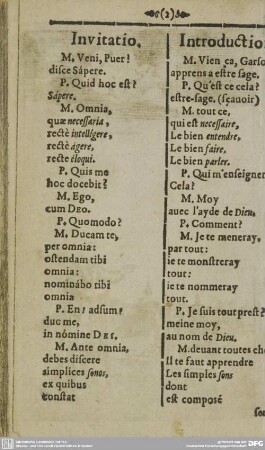 (2)
Invitatio.
M. Veni, Puer!
disce Sápere.
P. Quid hoc est?
Sápere.
M. Omnia,
quæ necessaria,
rectè intellígere,
rectè ágere,
recte éloqui.
P. Quis me
hoc docebit?
M. Ego,
cum DEO.
P. Quomodo?
M. Ducam te,
per omnia:
ostendam tibi
omnia:
nominábo tibi
omnia
P. En! adsum!
duc me,
in nómine DEI.
M. Ante omnia,
debes discere
simplices sonos,
ex quibus
constat
Introductio
M. Vien ça, Garso
apprens a estre sage.
P. Qu'est ce cela?
estre-sage. (sçauoir)
M. tout ce,
qui est necessaire,
Le bien entendre,
Le bien faire,
Le bien parler.
P. Qui m'enseigner
Cela?
M. Moy
avec l'ayde de Dieu.
P. Comment?
M. Je te meneray,
par tout:
ie te monstreray
tout:
ie te nommeray
tout.
P. Je suis tout prest?
meine moy,
au nom de Dieu.
M. devant toutes cho
Il te faut apprendre
Les simples sons
dont
est composé